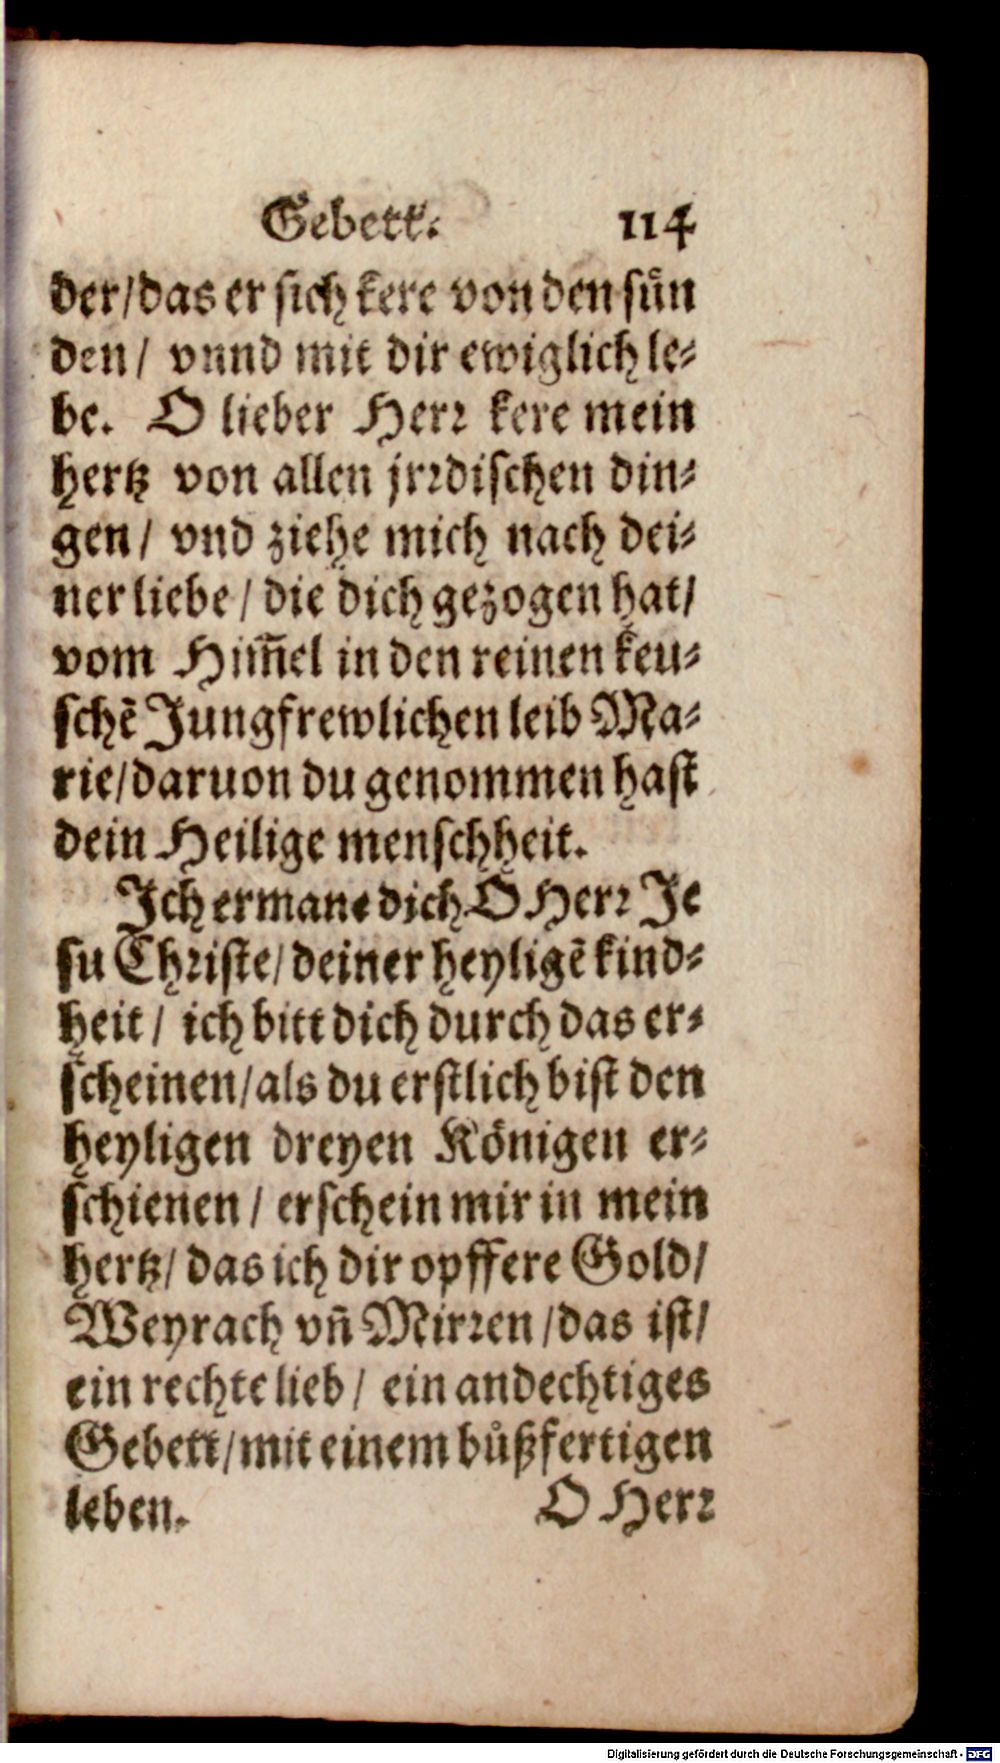 Gebett. 114
der/das er sich kere von den sün
den/ vnnd mit dir ewiglich le⸗
be. O lieber Herr kere mein
hertz von allen jrrdischen din⸗
gen/ vnd ziehe mich nach dei⸗
ner liebe/ die dich gezogen hat/
vom Him̃el in den reinen keu⸗
schẽ Jungfrewlichen leib Ma⸗
rie/daruon du genommen hast
dein Heilige menschheit.
Jch ermane dich O Herr Je
su Christe/ deiner heyligẽ kind⸗
heit/ ich bitt dich durch das er⸗
scheinen/als du erstlich bist den
heyligen dreyen Königen er⸗
schienen/ erschein mir in mein
hertz/ das ich dir opffere Gold/
Weyrach vñ Mirren/das ist/
ein rechte lieb/ ein andechtiges
Gebett/mit einem bůßfertigen
leben. O Herr
Digitalisierung gefördert durch die Deutsche Forschungsgemeinschaft - DFG